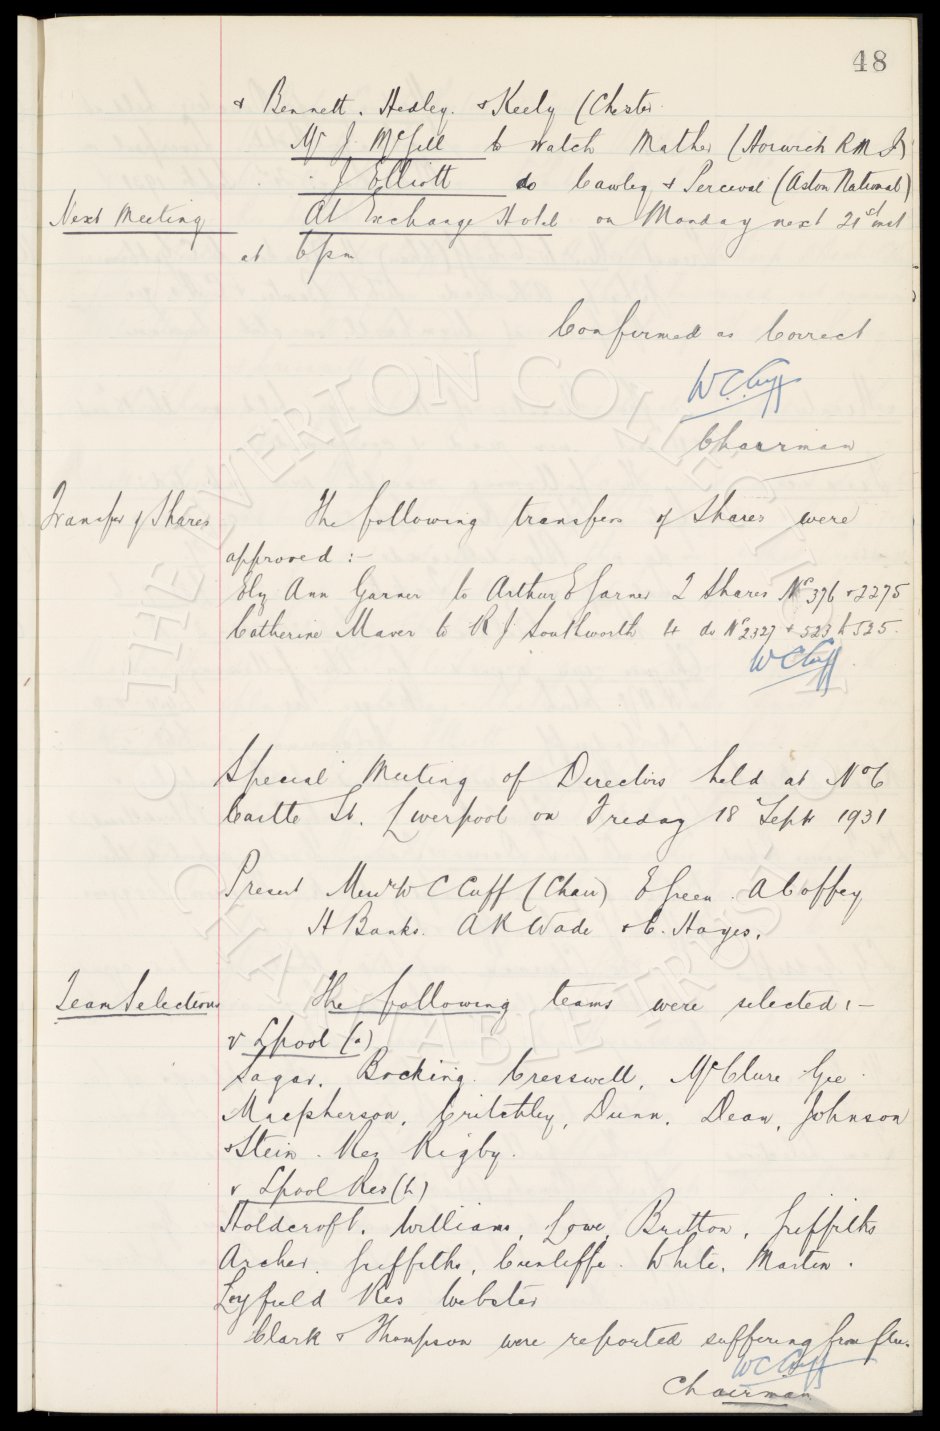 48
& Bennett. Hedley. & Keely (Chester
Mr J. McGill to watch Mather (Horwich R M I)
" J Elliott do Cawley & Perceval (Aston National)
Next Meeting At Exchange Hotel on Monday next 21st inst
at 6pm
Confirmed as Correct
W C Cuff
Chairman
Transfer of Shares The following transfers of Shares were
approved :-
Elz Ann Garner to Arthur E Garner 2 Shares Nos 376 & 2275
Catherine Maver to R J Southworth 4 do Nos 2327 & 523 to 525.
W C Cuff
Special Meeting of Directors held at No 6
Castle St. Liverpool on Friday 18 Sept 1931
Present Messrs W C Cuff (Chair) E Green. A Coffey
H Banks. A R Wade & C. Hayes.
Team Selections The following teams were selected :-
v L'pool (a)
Sagar. Bocking. Cresswell, McClure Gee.
Macpherson, Critchley, Dunn, Dean, Johnson
& Stein. Res Rigby.
v L'pool Res (h)
Holdcroft. Williams, Lowe, Britton, Griffiths
Archer. Griffiths, Cunliffe. White. Martin.
Leyfield Res Webster
Clark & Thompson were reported suffering from flu.
W C Cuff
Chairman
THE EVERTON COLLECTION
CHARITABLE TRUST